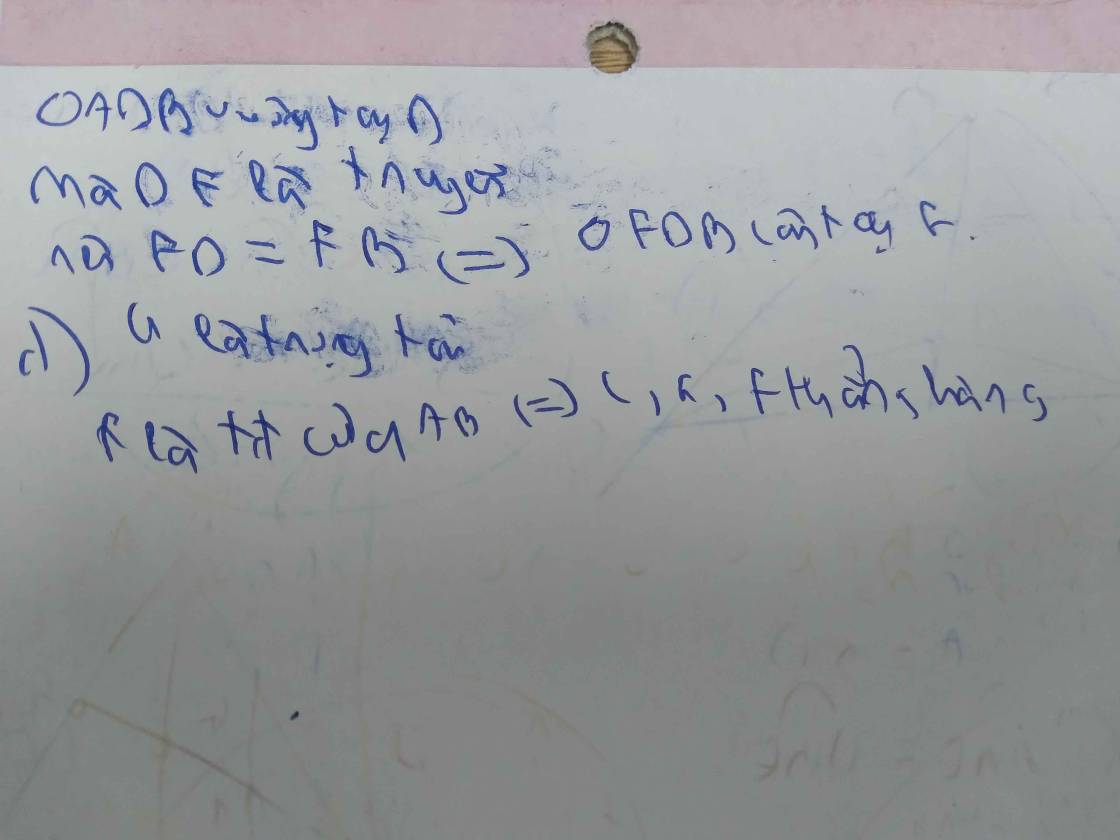 △ADB vuông tại D
Mà DF là tr tuyến
nà FD = FB (=) △ FDB cân tại F.
d) G là trọng tâm
F là tđ của AB (=) C, G, F thẳng hàng